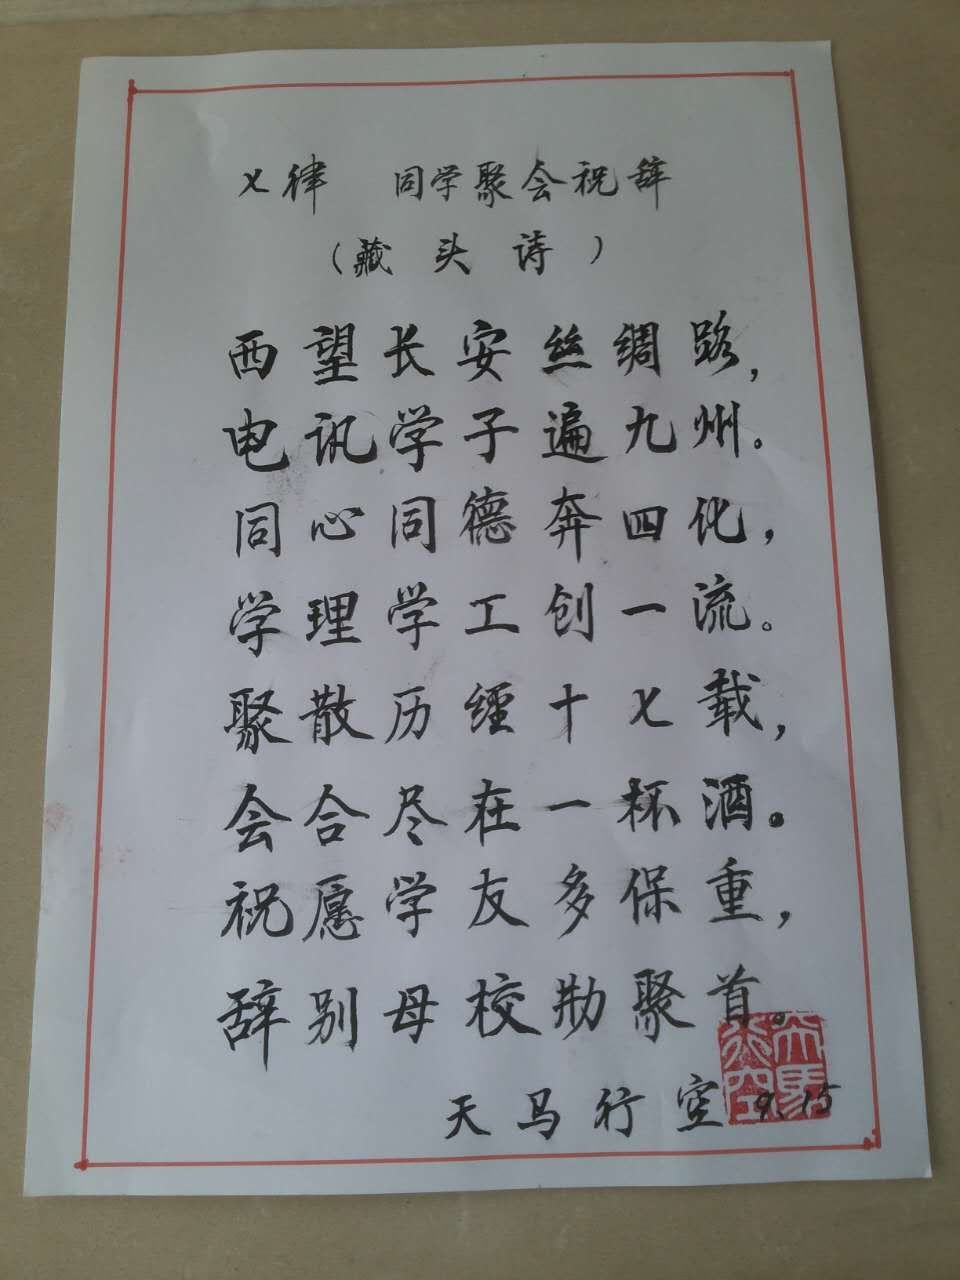 七律 同学聚会祝辞
（藏头诗）
西望长安丝绸路，
电讯学子遍九州。
同心同德奔四化，
学理学工创一流。
聚散历经十七载，
会合尽在一杯酒。
祝愿学友多保重，
辞别母校勤聚首。
天马行空 9.15
天马行空